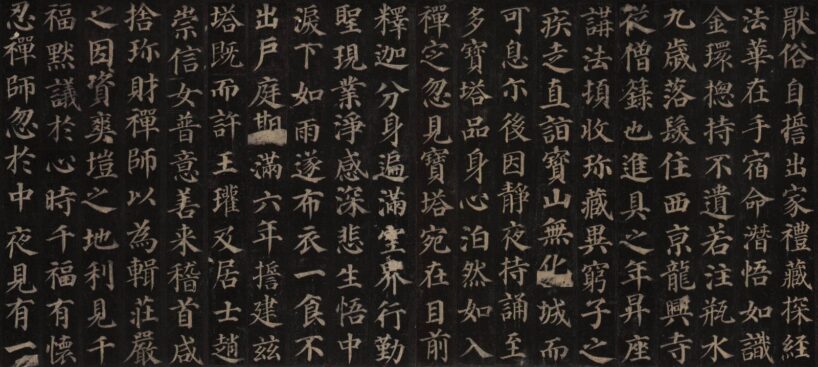 厭俗自誓出家禮藏探經
法華在手宿命潛悟如識
金環揔持不遺若注瓶水
九歲落髮住西京龍興寺
從僧籙也進具之年昇座
講法頓收珎藏異窮子之
疾走直詣寶山無化城而
可息尒後因靜夜持誦至
多寶塔品身心泊然如入
禪定忽見寶塔宛在目前
釋迦分身遍滿空界行勤
聖現業淨感深悲生悟中
淚下如雨遂布衣一食不
出戶庭期滿六年誓建茲
塔既而許王瓘及居士趙
崇信女普意善來稽首咸
捨珎財禪師以為輯莊嚴
之因資爽塏之地利見千
福默議於心時千福有懷
忍禪師忽於中夜見有一